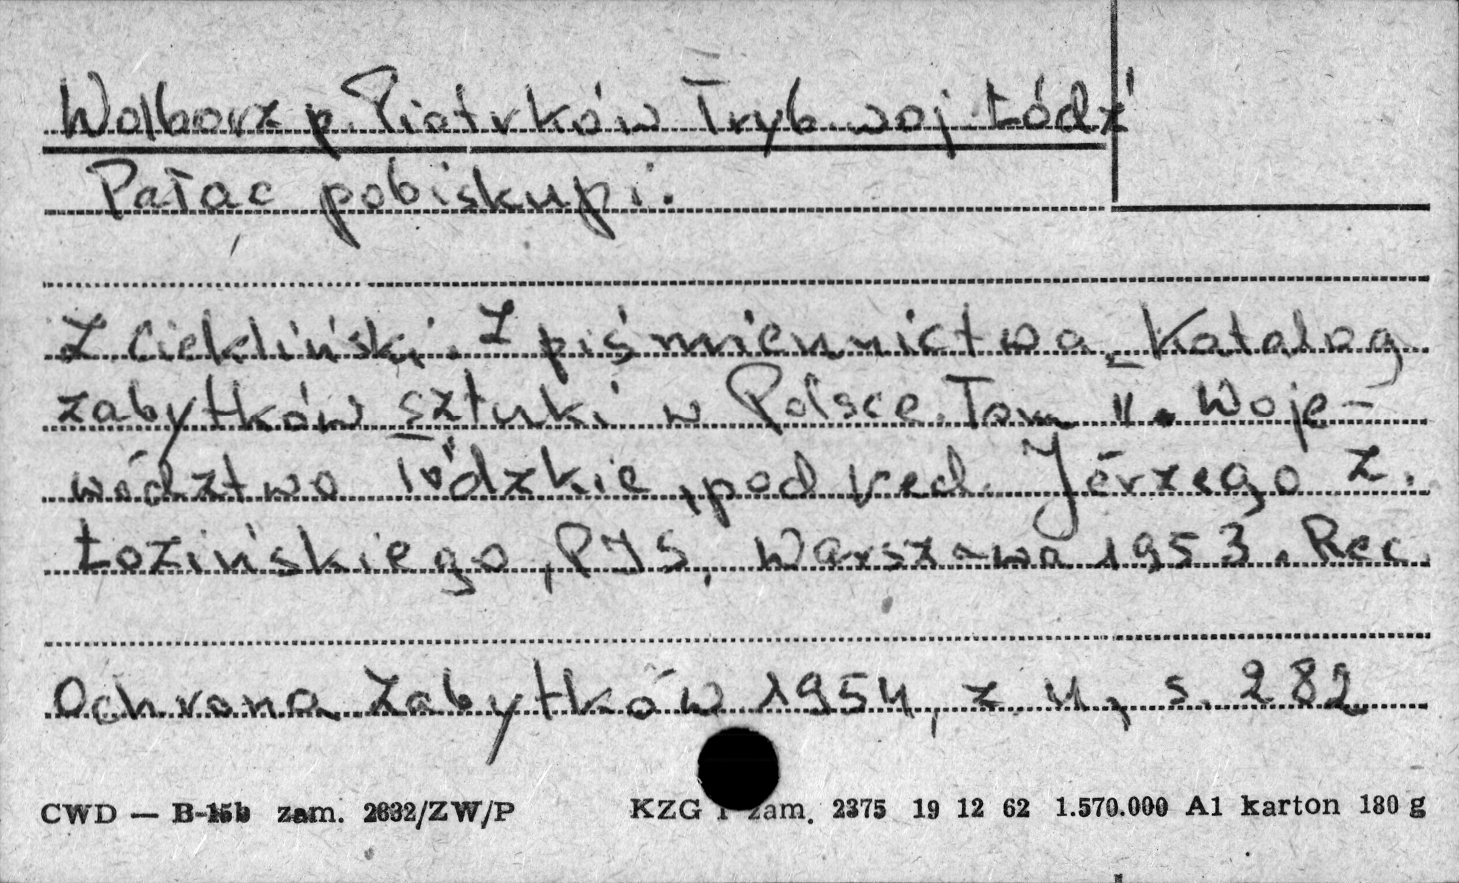 Wolborz p. Piotrków Tryb. woj. Łódź
Pałac pobiskupi.
Z Ciekliński. Z piśmiennictwa. Katalog
zabytków sztuki w Polsce. Tom II. Woje-
wództwo łódzkie, pod red. Jerzego Z.
Łozińskiego, PIS, Warszawa 1953. Rec.
Ochrona Zabytków 1954, z. 4, s. 282
CWD — B-15b zam. 2632/ZW/P KZG 1 zam. 2375 19 12 62 1.570.000 A1 karton 180 g